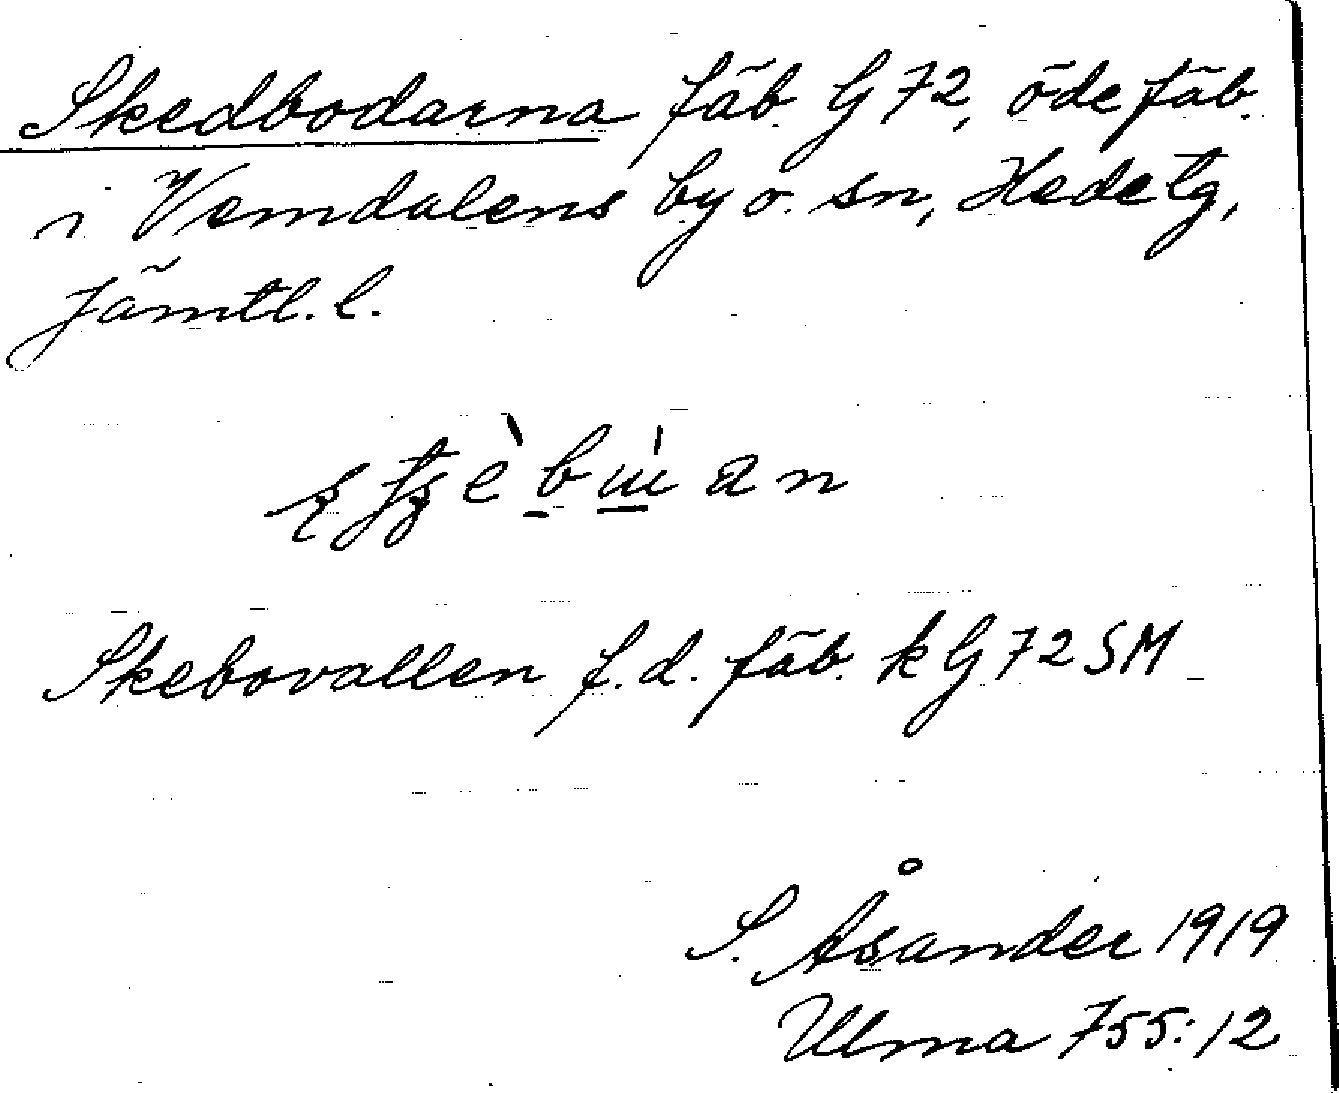 Skedbodarna fäb. G 72, öde fäb.
i Vemdalens by o. sn, Hede tg,
Jämtl. l.
Skebovallen f.d. fäb. k G 72 SM
S. Åsander 1919
Ulma 755:12